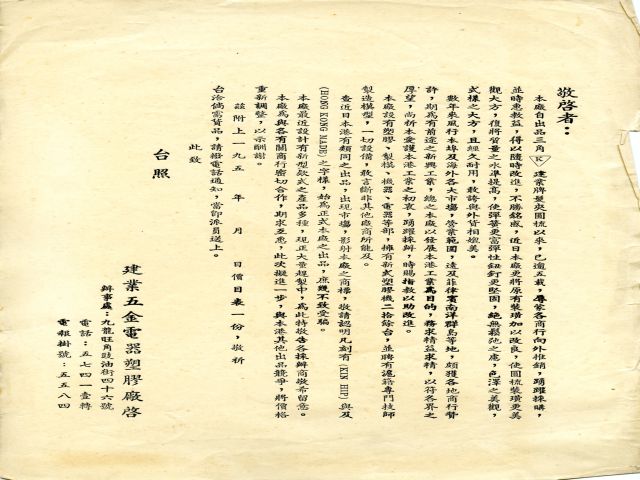 敬啓者：
本廠自出品三角K建業牌髮夾圓梳以來，已逾五載，辱蒙各商行向外推銷，踴躍採購，
並時惠教益，得以隨時改進，不勝銘感，近日本廠更將原有裝璜加以改良，使圓梳裝璜更美
觀大方，復將質量之水準提高，使彈簧更富彈性紐釘更堅固，絕無鬆弛之慮，色澤之美觀，
式樣之大方，且經久耐用，敢誇與外貨相媲美。
數年來風行本埠及海外各大市場，營業範圍，遠及菲律賓南洋群島等地，頗獲各地商行贊
許，期為有前途之新興工業，總之本廠以發展本港工業為目的，務求精益求精，以符各界之
厚望，尚祈本愛護本港工業之初衷，踴躍採辦，時賜指教以助改進。
本廠設有塑膠、製模、機器、電器等部，擁有新式塑膠機二拾餘台，並聘有滬籍專門技師
製造模型，一切設備，敢言斷非其他廠商所能及。
查近日本港有類同之出品，出現市場，影射本廠之商標，敬請認明凡刻有 (KIN HIP) 與及
(HONG KONG MADE) 之字樣，始為正式本廠之出品，庶幾不致受騙。
本廠最近設計有新型款式之產品多種，現正大量趕製中，為此特敬告各採辦商敬希留意。
本廠為與各有關商行密切合作，期求互惠，此次擬進一步，與本港其他出品競爭，將價格
重新調整，以示酬謝。
茲附上一九五　年　月　日價目表一份，敬祈
台洽倘需貨品，請撥電話通知，當卽派員送上。
此致
台照
建業五金電器塑膠廠啓
辦事處：九龍旺角豉油街四十六號
電話：五七四一壹轉
電報掛號：五五八四